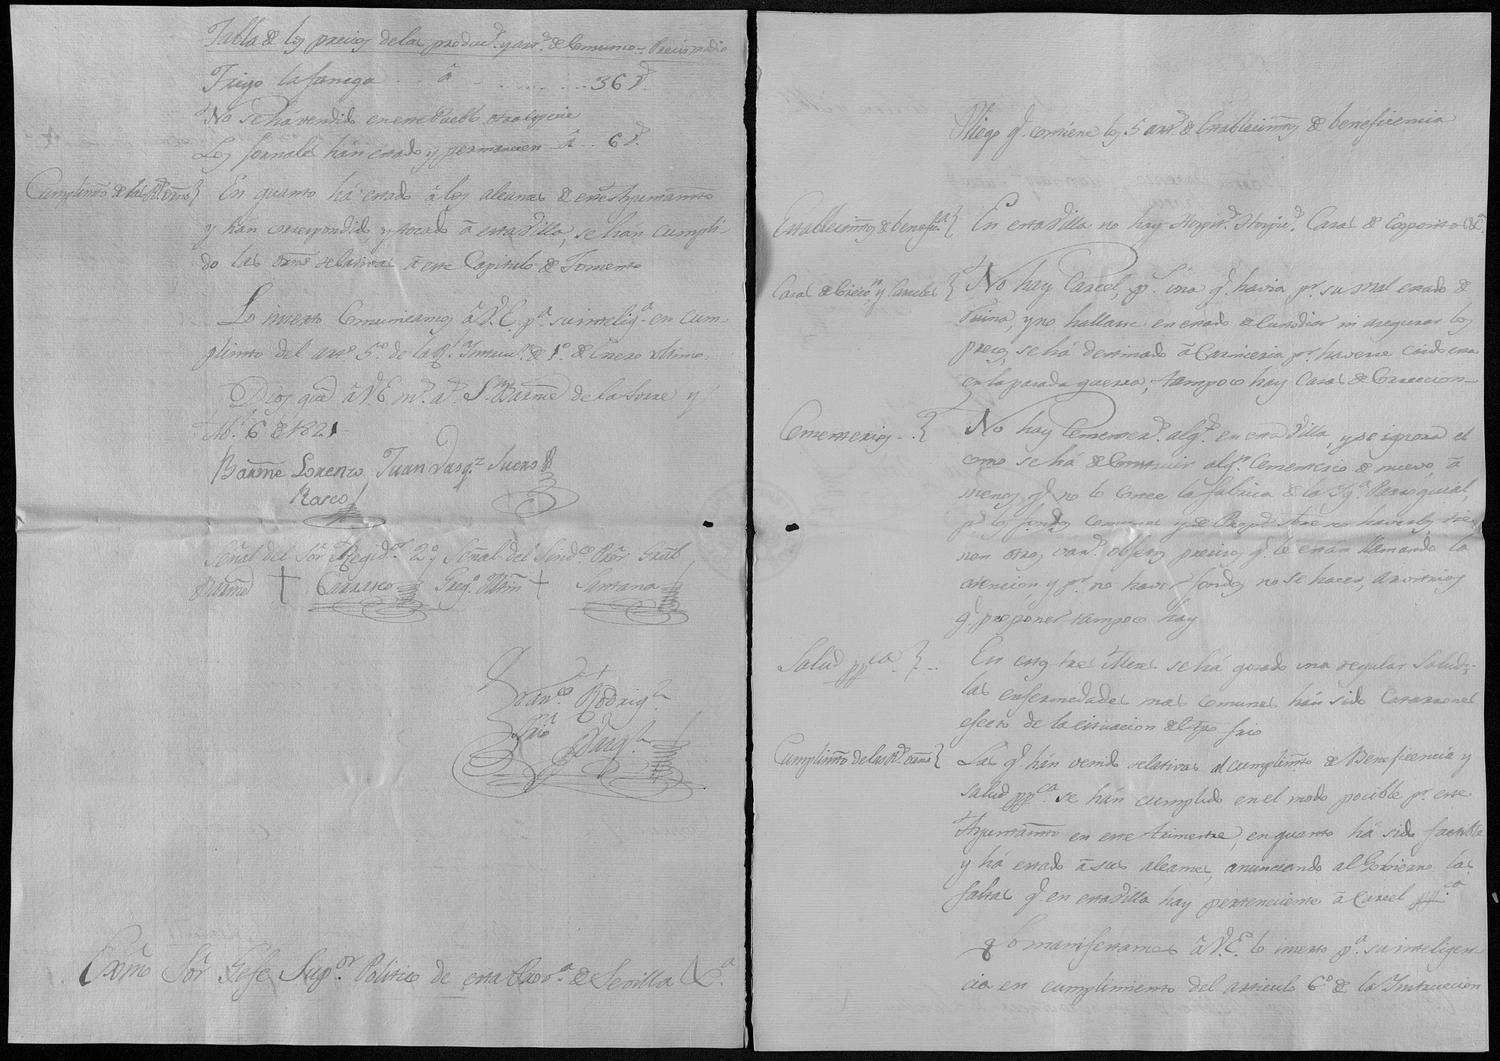 Tabla de los precios de los produc.s y art.s de Consumo = Precio medio
Trigo la fanega . . â . . . . . . . . 36 r.s
No se há vendido en este Pueblo otra especie
Los Jornales hán estado y permanecen â . . 6 r.s
Cumplim.to de las R.s orns } En quanto há estado â los alcances de este Ayuntam.to
y hán correspondido y tocado â esta Villa, se hán cumpli-
do las orns relativas â este Capitulo de Fomento
Lo inserto Comunicamos â V.E. p.a su intelig.a en cum-
plim.to del art.o 5.o de la Instruc.n de 1.o de Enero ultimo.
Dios gue â V.E. m.s a.s S.n Barme de la Torre y
Ab.l 6 de 1821.
Barme Lorenzo Juan Vasq.z Suero
Rasco
Señal del Sor Regid.or 2.o Señal del Sindco Pror Gral
Barme † Carrasco Greg.o Mrñ † Santana
Franco Rodrig.z
Srio
Exmo Sor Gefe Sup.or Politico de esta Prov.a de Sevilla &.a
Pliego q.e contiene los 5 art.s de Establecim.tos de beneficencia
Establecim.tos de benefic.a } En esta Villa no hay Hospit.s Hospic.s Casas de Expositos &.a
Casas de Correc.n y Carceles } No hay Carcel, p.s una q.e havia p.r su mal estado de
ruina, y no hallarse en estado de Custodiar ni asegurar los
presos, se há destinado â Carniceria p.r haverse caido esta
en la pasada guerra; tampoco hay Casas de Correccion
Cementerios . . { No hay Cementer.o alg.o en esta Villa, y se ignora el
como se há de Construir alg.n Cementerio de nuevo, â
menos q.e no lo Costee la fabrica de la Ig.a Parroquial,
p.s los fondos comunes y de Prop.s sobre no haverlos tie-
nen otros var.s objetos precisos q.e le están llamando la
atencion, y p.r no haver fondos no se hace, Arvitrios
q.e proponer tampoco hay
Salud pp.ca } . . En estos tres Meses se há gozado una regular Salud;
las enfermedades mas comunes hán sido Catarrales
efecto de la estacion del tpo frio
Cumplim.to de las R.s orns } Las q.e hán venido relativas al cumplim.to de Beneficencia y
Salud pp.ca se hán cumplido en el modo posible p.r este
Ayuntam.to en este trimestre, en quanto há sido factible
y há estado â sus alcances, anunciando al Gobierno las
faltas q.e en esta Villa hay perteneciente â Carcel pp.ca
Lo manifestamos â V.E. lo inserto p.a su inteligen-
cia en cumplimiento del articulo 6.o de la Instruccion